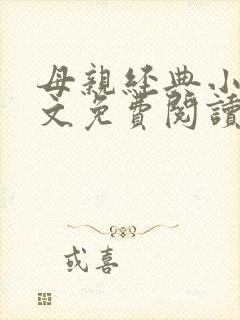 母親經典小
文免費閱讀
或喜